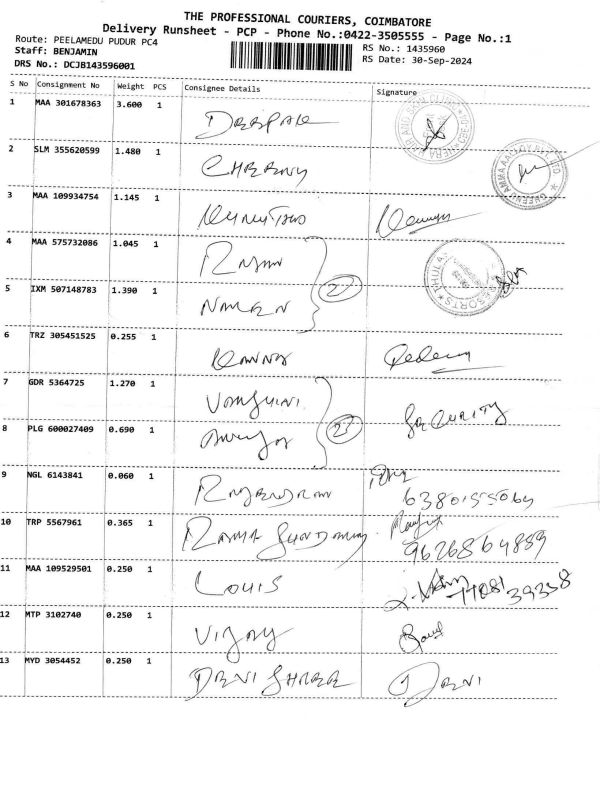 THE PROFESSIONAL COURIERS, COIMBATORE
Delivery Runsheet - PCP - Phone No.:0422-3505555 - Page No.:1
Route: PEELAMEDU PUDUR PC4
RS No.: 1435960
Staff: BENJAMIN
RS Date: 30-Sep-2024
DRS No.: DCJB143596001
S No Consignment No Weight PCS Consignee Details Signature
1 MAA 301678363 3.600 1 DEEPAK
2 SLM 355620599 1.480 1
3 MAA 109934754 1.145 1
4 MAA 575732086 1.045 1 RAJAN
5 IXM 507148783 1.390 1 NAREN
6 TRZ 305451525 0.255 1 KANNA
7 GDR 5364725 1.270 1 VAMSHINI SECURITY
8 PLG 600027409 0.690 1
9 NGL 6143841 0.060 1 RAJENDRAN
6380155069
10 TRP 5567961 0.365 1 RAMA SUNDARAM
9626864889
11 MAA 109529501 0.250 1 LOUIS
12 MTP 3102740 0.250 1 VIJAY
13 MYD 3054452 0.250 1 DEVI SHREE DEVI